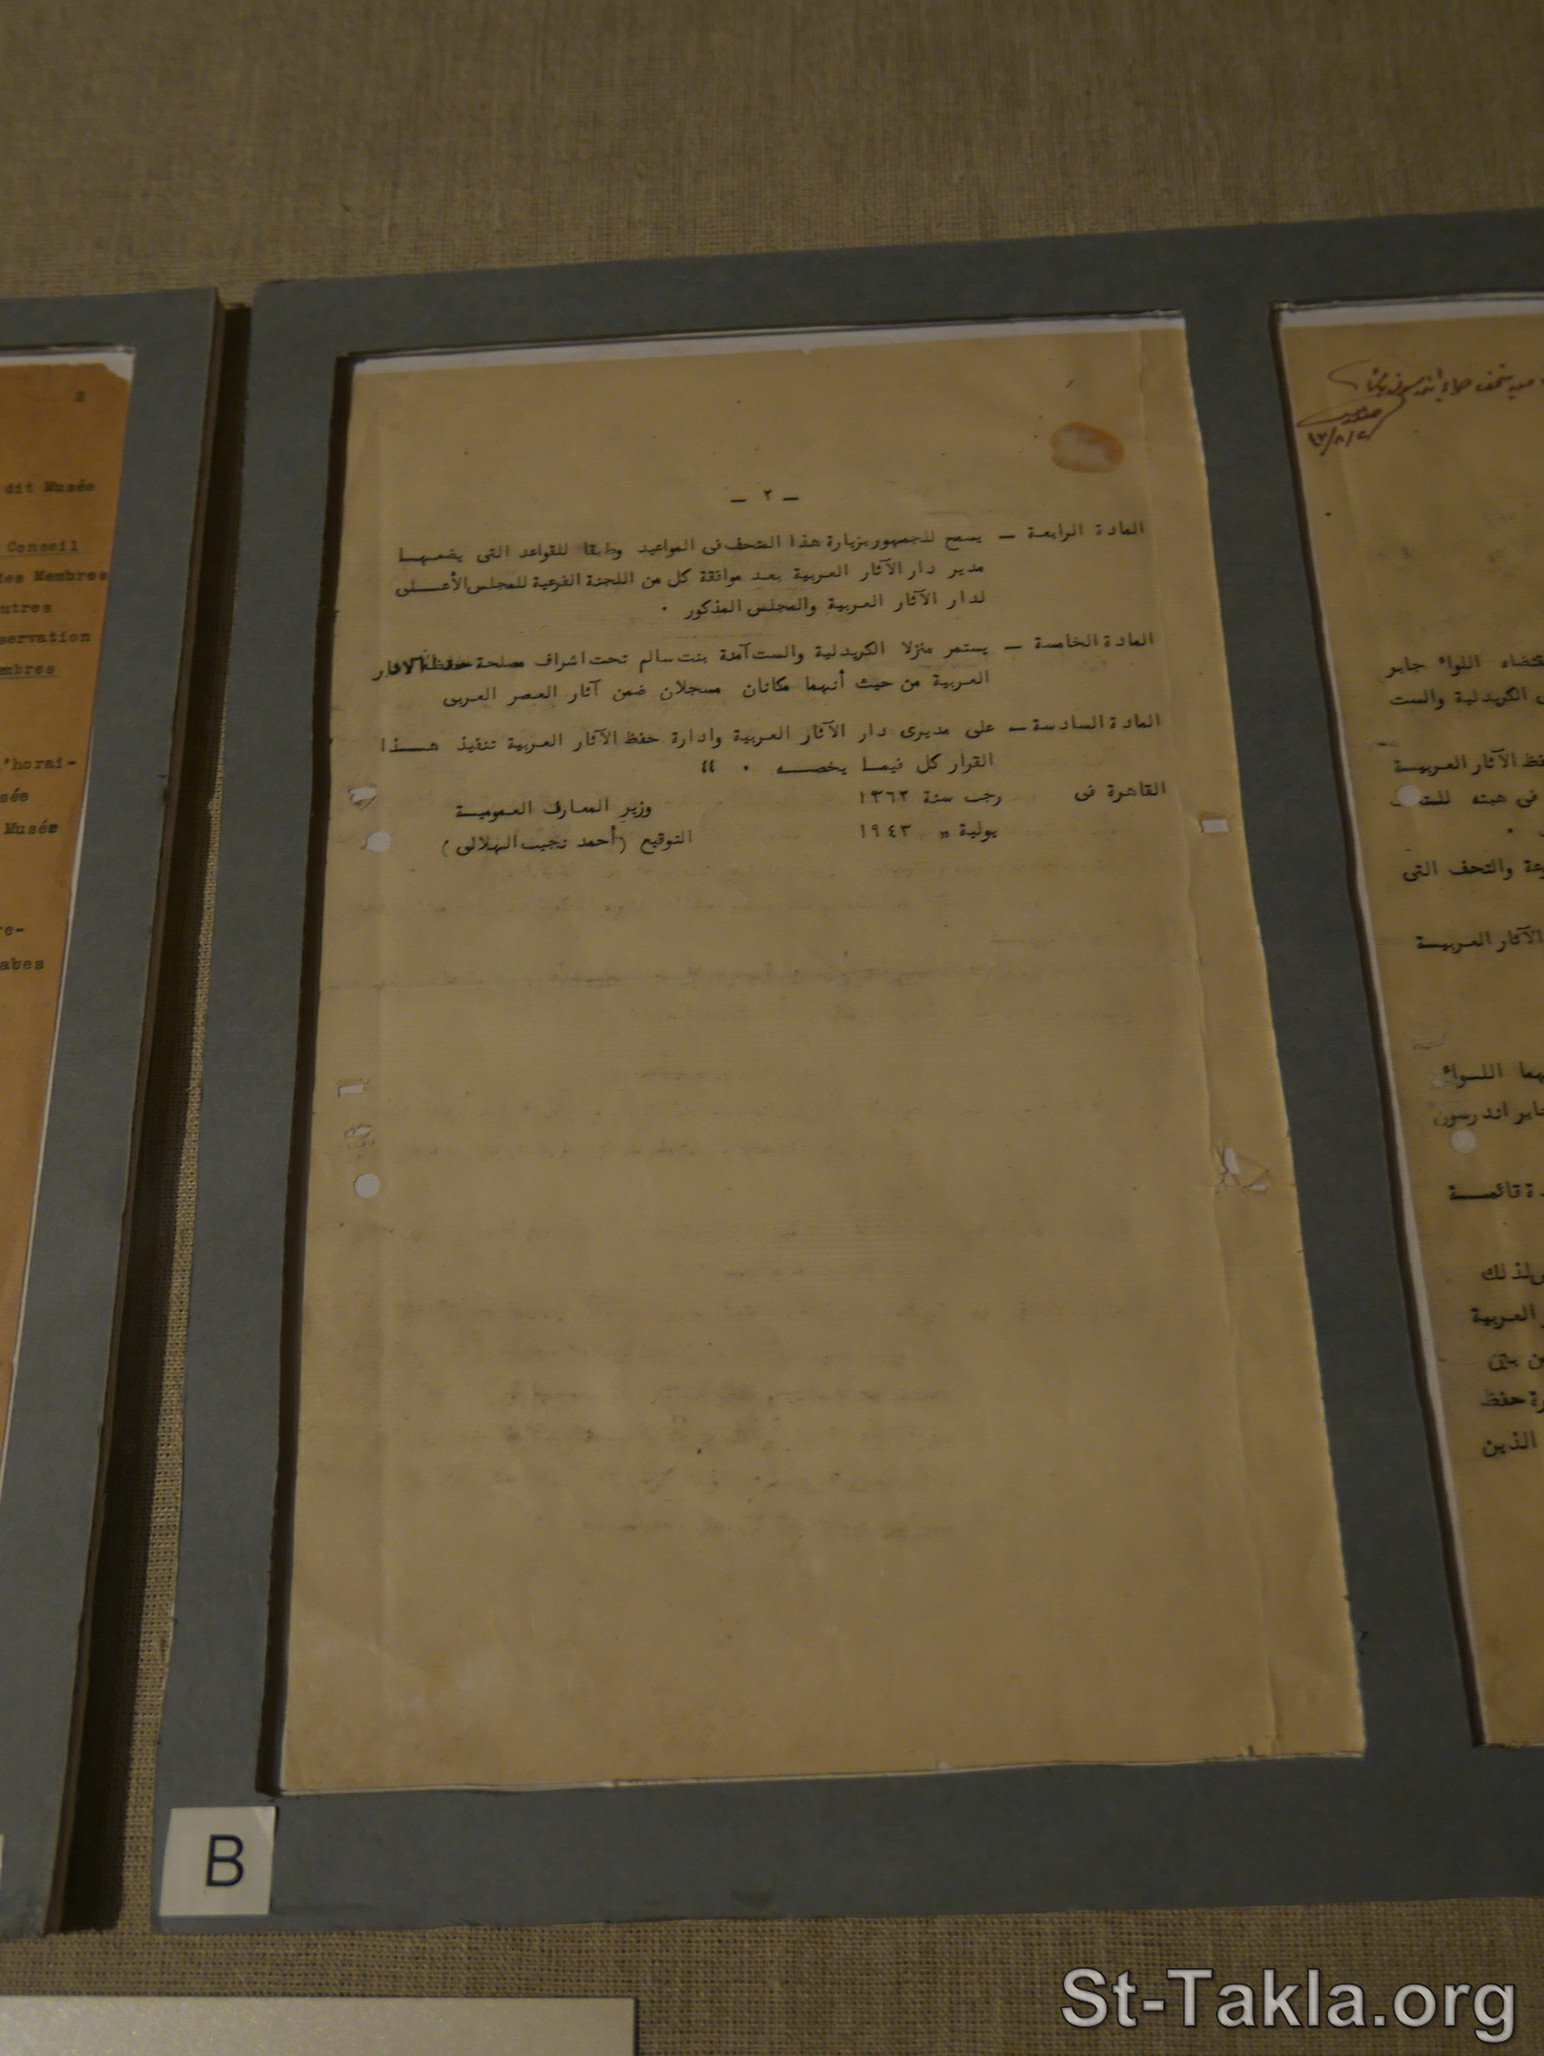 2
dit Musée
Conseil
des Membres
utres
servation
mbres
l'horai-
sée
Musée
re-
abes
— ٢ —
المادة الرابعة — يسمح للجمهور بزيارة هذا المتحف فى المواعيد وطبقا للقواعد التى يضعهـا
مدير دار الآثار العربية بعد موافقة كل من اللجنة الفرعية للمجلس الأعـــلى
لدار الآثار العربية والمجلس المذكور ٠
المادة الخامسة — يستمر منزلا الكريدلية والست آمنة بنت سالم تحت اشراف مصلحة حفظ الآثار
العربية من حيث أنهما مكانان مسجلان ضمن آثار العصر العربى
المادة السادسة — على مديرى دار الآثار العربية وادارة حفظ الآثار العربية تنفيذ هـــذا
القرار كل فيمـا يخصـــه ٠ "
القاهرة فى رجب سنة ١٣٦٢ وزير المعارف العموميـة
يولية " ١٩٤٣ التوقيع (أحمد نجيب الهلالى)
اللواء جاير
الكريدلية والست
حفظ الآثار العربيــة
فى هيئة
والتحف التى
الآثار العربيــة
اللــواء
جاير اندرسون
قائمــة
لذلك
العربية
حفظ
الذين
B
St-Takla.org